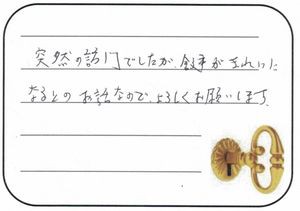 突然の訪問でしたが、錠事がきれいに
なるとのお話なので、よろしくお願いします。